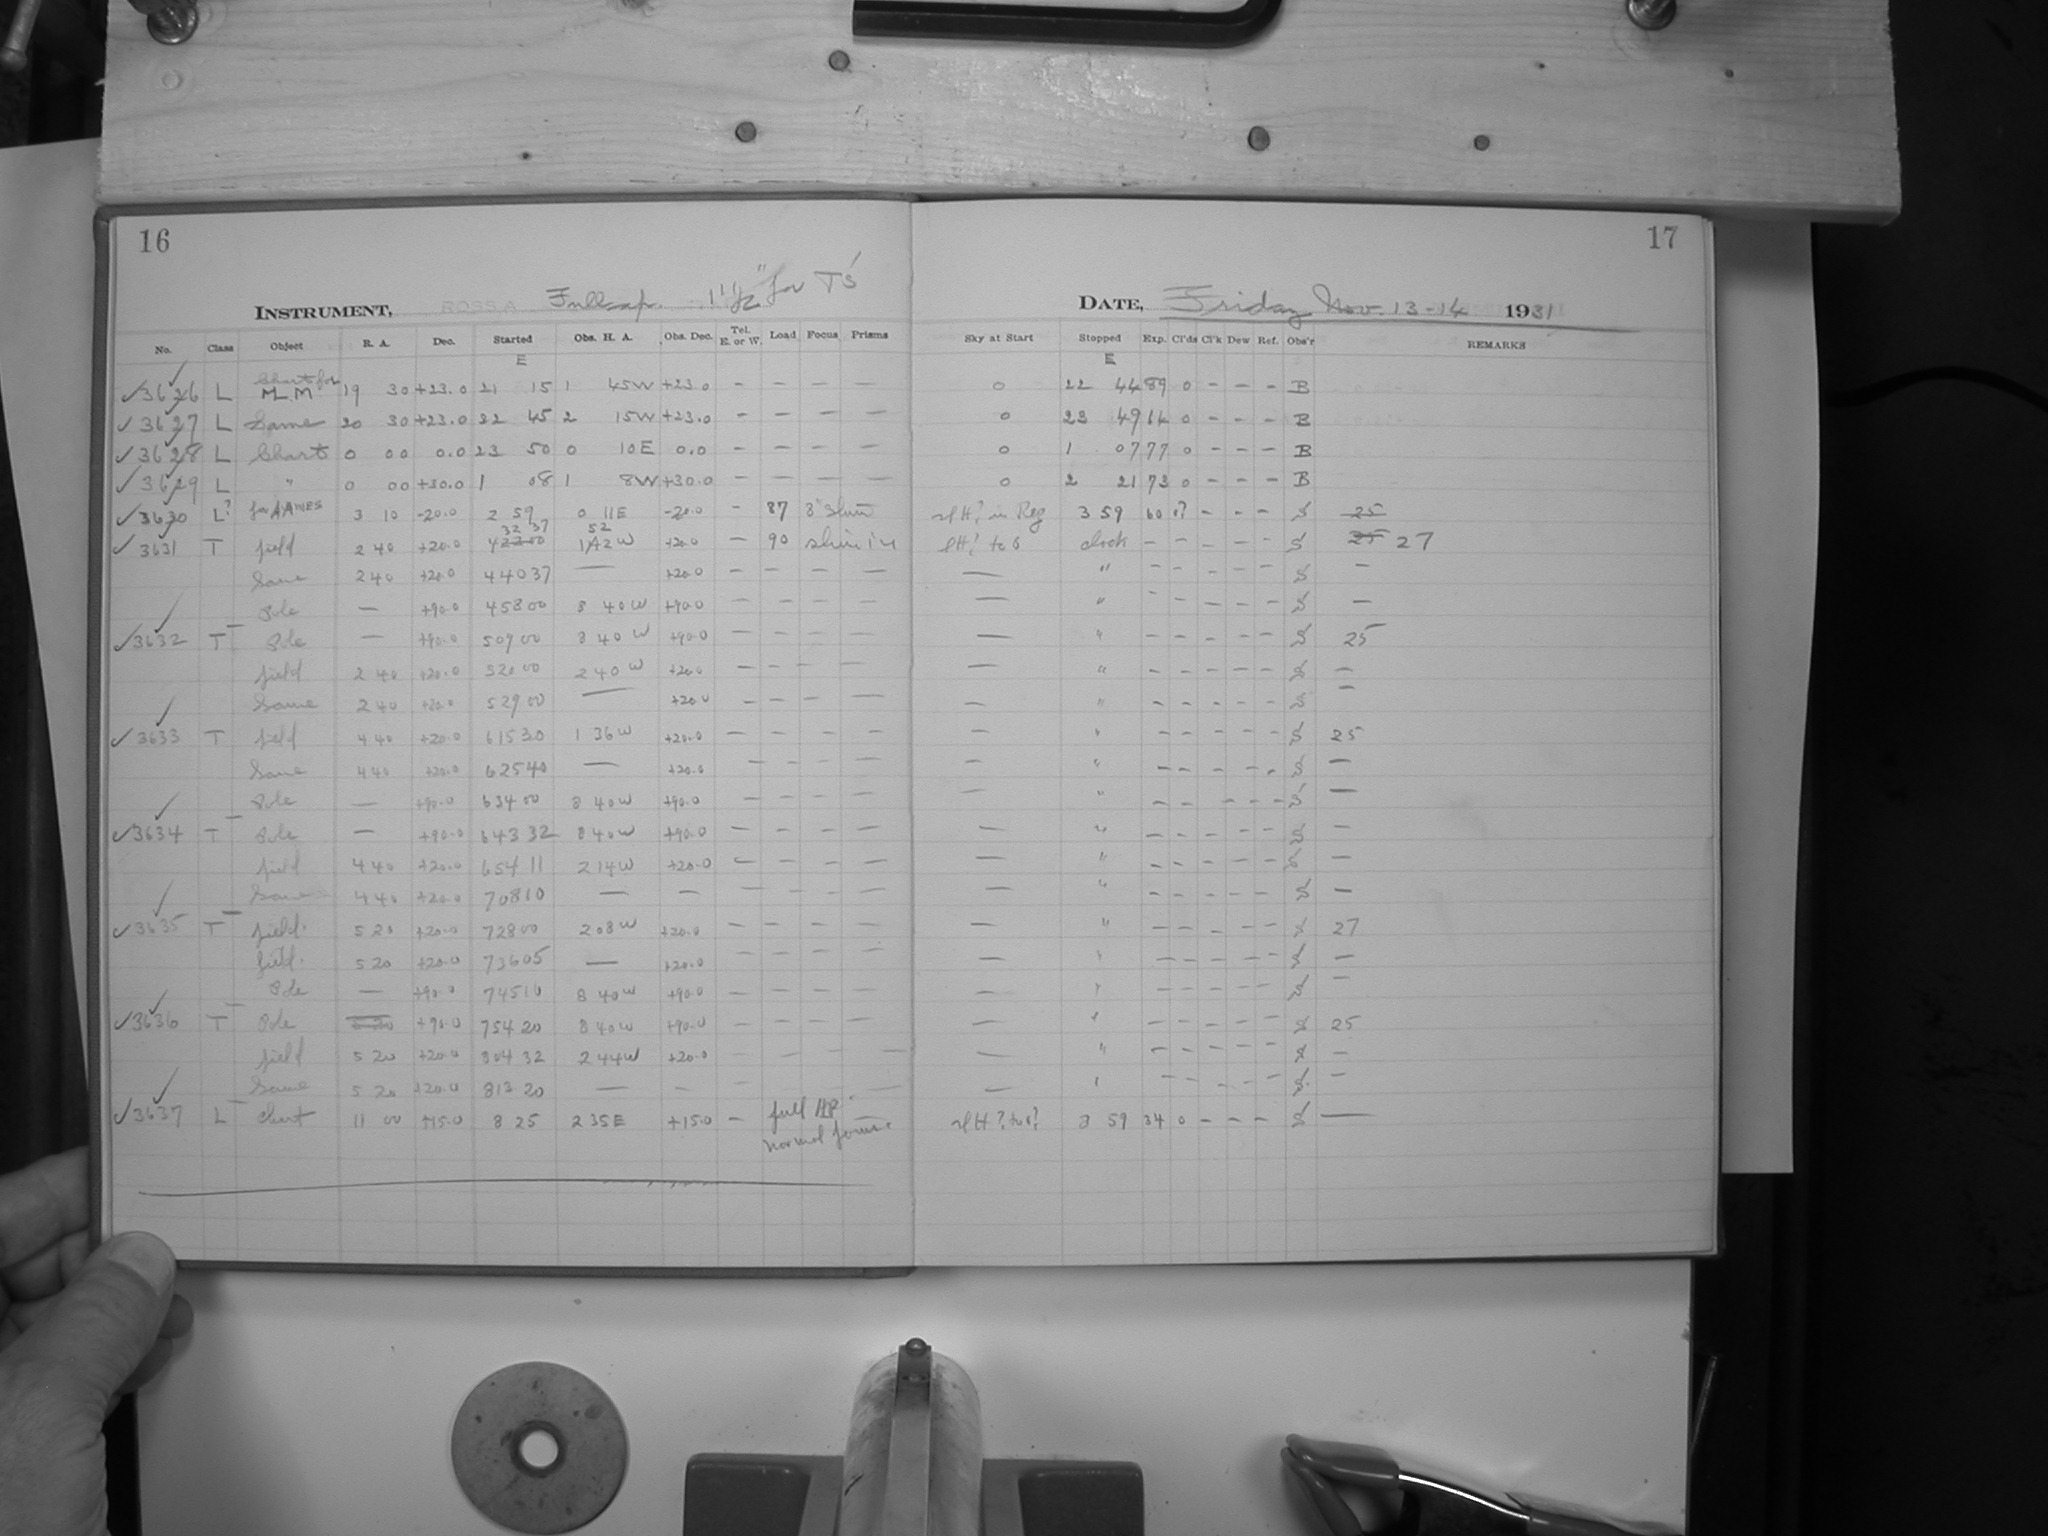 16
17
INSTRUMENT, ROSS A Full ap. 1 1/2" for T's
DATE, Friday Nov. 13-14 1931
No. Class Object R. A. Dec. Started Obs. H. A. Obs. Dec. Tel. E. or W. Load Focus Prisms Sky at Start Stopped Exp. Cl'ds Cl'k Dew Ref. Obs'r REMARKS
E E
3626 L M. M. 19 30 +23.0 21 15 1 45W +23.0 - - - - 0 22 44 89 0 - - - B
3627 L Same 20 30 +23.0 22 45 2 15W +23.0 - - - - 0 23 49 64 0 - - - B
3628 L Chart 0 00 0.0 23 50 0 10E 0.0 - - - - 0 1 07 77 0 - - - B
3629 L " 0 00 +30.0 1 08 1 8W +30.0 - - - - 0 2 21 73 0 - - - B
3630 L? for AAVVES 3 10 -20.0 2 59 0 11E -20.0 - 87 in Reg 3 59 60 0? - - - S 25
32 37 52
3631 T field 2 40 +20.0 W +20.0 - 90 clock - - - - - S 25 27
Same 2 40 +20.0 4 40 37 — +20.0 - - - - — " - - - - - S -
Pole — +90.0 4 58 00 8 40W +90.0 - - - - — " - - - - - S -
3632 T Pole — +90.0 5 09 00 8 40W +90.0 - - - - — " - - - - - S 25
field 2 40 +20.0 5 20 00 2 40W +20.0 - - - - — " - - - - - S -
Same 2 40 +20.0 5 29 00 — +20.0 - - - - — " - - - - - S -
3633 T field 4 40 +20.0 6 15 30 1 36W +20.0 - - - - — " - - - - - S 25
Same 4 40 +20.0 6 25 40 — +20.0 - - - - — " - - - - - S -
Pole — +90.0 6 34 00 8 40W +90.0 - - - - — " - - - - - S -
3634 T Pole — +90.0 6 43 32 8 40W +90.0 - - - - — " - - - - - S -
field 4 40 +20.0 6 54 11 2 14W +20.0 - - - - — " - - - - - S -
Same 4 40 +20.0 7 08 10 — — - - - - — " - - - - - S -
3635 T field 5 20 +20.0 7 28 00 2 08W +20.0 - - - - — " - - - - - S 27
field 5 20 +20.0 7 36 05 — +20.0 - - - - — " - - - - - S -
Pole — +90.0 7 45 10 8 40W +90.0 - - - - — " - - - - - S -
3636 T Pole 5 20 +90.0 7 54 20 8 40W +90.0 - - - - — " - - - - - S 25
field 5 20 +20.0 8 04 32 2 44W +20.0 - - - - — " - - - - - S -
Same 5 20 +20.0 8 13 20 — - - - - - — " - - - - - S -
3637 L Chart 11 00 +15.0 8 25 2 35E +15.0 - full AP 8 59 34 0 - - - S —
normal focus